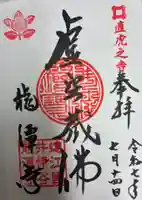 直虎之寺
奉拝
虚空蔵佛
龍潭寺
令和七年
七月十四日